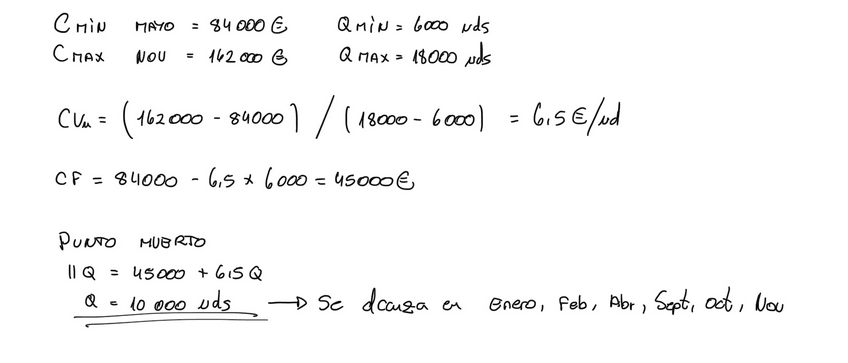 CMIN MAYO = 84000 € QMIN = 6000 uds
CMAX NOV = 162000 € QMAX = 18000 uds
CVu = (162000 - 84000) / (18000 - 6000) = 6,5 €/ud
CF = 84000 - 6,5 x 6000 = 45000 €
PUNTO MUERTO
11Q = 45000 + 6,5Q
Q = 10 000 uds → Se alcanza en Enero, Feb, Abr, Sept, Oct, Nov